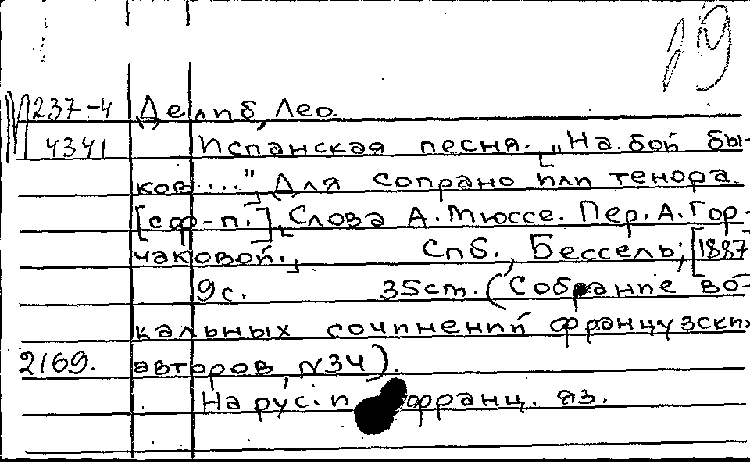 19
М237-4 Делиб, Лео.
4341 Испанская песня. „На бой бы-
ков...." Для сопрано или тенора.
[с ф-п.] Слова А. Мюссе. Пер. А. Гор-
чаковой. Спб., Бессель, [1887
9с. 35cm. (Собрание во-
кальных сочинений французских
2169. авторов, N34).
На рус. и франц. яз.